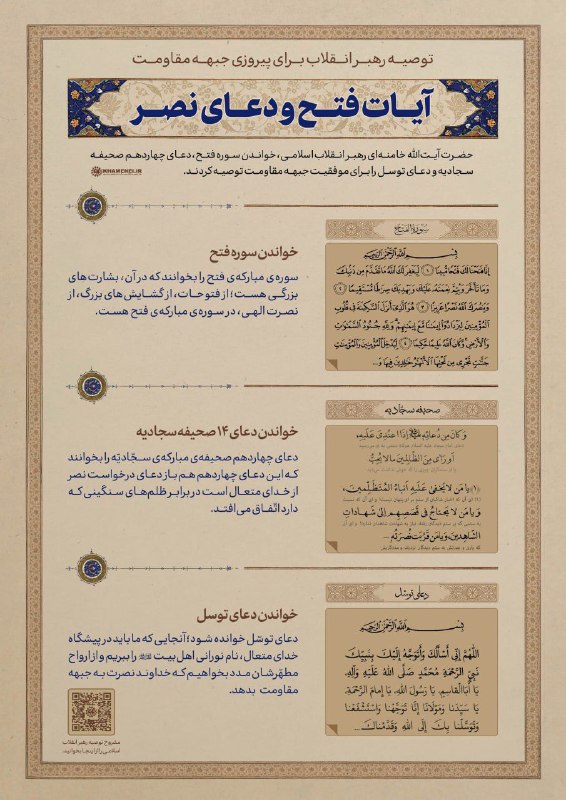 توصیه رهبر انقلاب برای پیروزی جبهه مقاومت
آیات فتح و دعای نصر
حضرت آیت‌الله خامنه‌ای رهبر انقلاب اسلامی، خواندن سوره فتح، دعای چهاردهم صحیفه
سجادیه و دعای توسل را برای موفقیت جبهه مقاومت توصیه کردند.
KHAMENEI.IR
خواندن سوره فتح
سوره‌ی مبارکه‌ی فتح را بخوانند که در آن، بشارت‌های
بزرگی هست؛ از فتوحات، از گشایش‌های بزرگ، از
نصرت الهی، در سوره‌ی مبارکه‌ی فتح هست.
سورة الفتح
بِسْمِ اللَّهِ الرَّحْمَٰنِ الرَّحِيمِ
إِنَّا فَتَحْنَا لَكَ فَتْحًا مُبِينًا ﴿١﴾ لِيَغْفِرَ لَكَ اللَّهُ مَا تَقَدَّمَ مِن ذَنبِكَ
وَمَا تَأَخَّرَ وَيُتِمَّ نِعْمَتَهُ عَلَيْكَ وَيَهْدِيَكَ صِرَاطًا مُسْتَقِيمًا ﴿٢﴾
وَيَنصُرَكَ اللَّهُ نَصْرًا عَزِيزًا ﴿٣﴾ هُوَ الَّذِي أَنزَلَ السَّكِينَةَ فِي قُلُوبِ
الْمُؤْمِنِينَ لِيَزْدَادُوا إِيمَانًا مَعَ إِيمَانِهِمْ وَلِلَّهِ جُنُودُ السَّمَاوَاتِ
وَالْأَرْضِ وَكَانَ اللَّهُ عَلِيمًا حَكِيمًا ﴿٤﴾ لِيُدْخِلَ الْمُؤْمِنِينَ وَالْمُؤْمِنَاتِ
جَنَّاتٍ تَجْرِي مِن تَحْتِهَا الْأَنْهَارُ خَالِدِينَ فِيهَا وَ...
خواندن دعای ۱۴ صحیفه سجادیه
دعای چهاردهم صحیفه‌ی مبارکه‌ی سجّادیّه را بخوانند
که این دعای چهاردهم هم باز دعای درخواست نصر
از خدای متعال است در برابر ظلم‌های سنگینی که
دارد اتّفاق می‌افتد.
صحیفه سجادیه
وَ كَانَ مِنْ دُعَائِهِ إِذَا اعْتُدِيَ عَلَيْهِ،
أَوْ رَأَى مِنَ الظَّالِمِينَ مَا لَا يُحِبُّ
﴿١﴾ يَا مَنْ لَا يَخْفَى عَلَيْهِ أَنْبَاءُ الْمُتَظَلِّمِينَ،
وَ يَا مَنْ لَا يَحْتَاجُ فِي قَصَصِهِمْ إِلَى شَهَادَاتِ
الشَّاهِدِينَ، وَ يَا مَنْ قَرُبَتْ نُصْرَتُهُ ...
خواندن دعای توسل
دعای توسّل خوانده شود؛ آنجایی که ما باید در پیشگاه
خدای متعال، نام نورانی اهل‌بیت را ببریم و از ارواح
مطهّرشان مدد بخواهیم که خداوند نصرت به جبهه
مقاومت بدهد.
دعای توسّل
بِسْمِ اللَّهِ الرَّحْمَٰنِ الرَّحِيمِ
اللَّهُمَّ إِنِّي أَسْأَلُكَ وَأَتَوَجَّهُ إِلَيْكَ بِنَبِيِّكَ
نَبِيِّ الرَّحْمَةِ مُحَمَّدٍ صَلَّى اللَّهُ عَلَيْهِ وَآلِهِ.
يَا أَبَا الْقَاسِمِ، يَا رَسُولَ اللَّهِ، يَا إِمَامَ الرَّحْمَةِ،
يَا سَيِّدَنَا وَمَوْلَانَا إِنَّا تَوَجَّهْنَا وَاسْتَشْفَعْنَا
وَتَوَسَّلْنَا بِكَ إِلَى اللَّهِ وَقَدَّمْنَاكَ ...
مشروح توصیه رهبر انقلاب
اسلامی را از اینجا بخوانید.